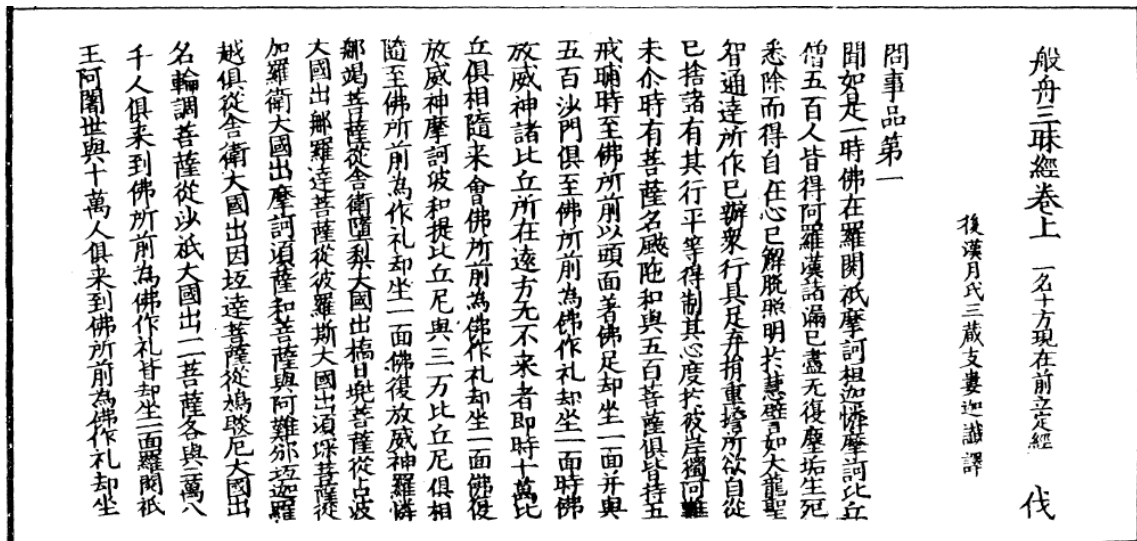 般舟三昧經卷上 一名十方現在前立定經 伐
後漢月氏三藏支婁迦讖譯
問事品第一
聞如是一時佛在羅閱祇摩訶桓迦憐摩訶比丘
僧五百人皆得阿羅漢諸漏已盡无復塵垢生死
悉除而得自在心已解脫照明於慧譬如大龍聖
智通達所作已辦衆行具足弃捐重擔所欲自從
已捨諸有其行平等得制其心度於彼岸獨阿難
未尒時有菩薩名颰陁和與五百菩薩俱皆持五
戒晡時至佛所前以頭面著佛足却坐一面并與
五百沙門俱至佛所前為佛作礼却坐一面時佛
放威神諸比丘所在遠方无不来者即時十萬比
丘俱相隨来會佛所前為佛作礼却坐一面佛復
放威神摩訶波和提比丘尼與三万比丘尼俱相
隨至佛所前為作礼却坐一面佛復放威神羅憐
那竭菩薩從舍衛墮梨大國出橋日兜菩薩從占波
大國出那羅達菩薩從彼羅斯大國出須深菩薩從
加羅衛大國出摩訶須薩和菩薩與阿難邠坻迦羅
越俱從舍衛大國出因坻達菩薩從鳩睒尼大國出
名輪調菩薩從沙祇大國出一一菩薩各與二萬八
千人俱来到佛所前為佛作礼皆却坐一面羅閱祇
王阿闍世與十萬人俱来到佛所前為佛作礼却坐